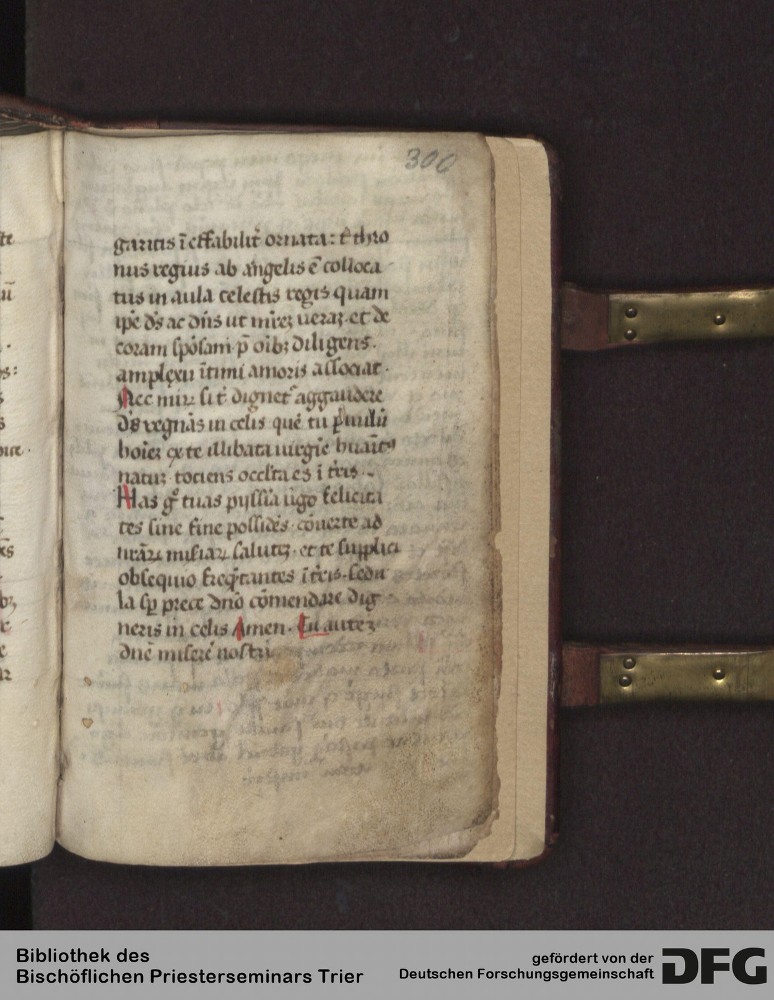 300
garitis īeffabilit᷑ ornata: t᷑ thro
nus regius ab angelis ē colloca
tus in aula celestis regis quam
ip̄e dс̄ ac dn̄s ut mr̄eꝫ ueraꝫ et de
coram sponsam p̄ oībꝫ diligens.
amplexu ītimi amoris associat.
Nec miꝝ si t᷑ dignet᷑ aggaudere
ds̄ regnās in celis quē tu
hoīeꝫ ex te illibata uirgīe
natuꝫ tociens ī tr̄is.
Has gͦ tuas pyssīa ūgo felicita
tes sine fine possidēs cōuerte ad
nr̄aꝝ misiaꝝ salutꝫ et te supplici
obsequio freq̄tantes ī tr̄is sedu
la sp̄ prece dn̄o cōmendare dig
neris in celis Amen. Tu auteꝫ
dn̄e miserē nostri
Bibliothek des
Bischöflichen Priesterseminars Trier
gefördert von der
Deutschen Forschungsgemeinschaft
DFG